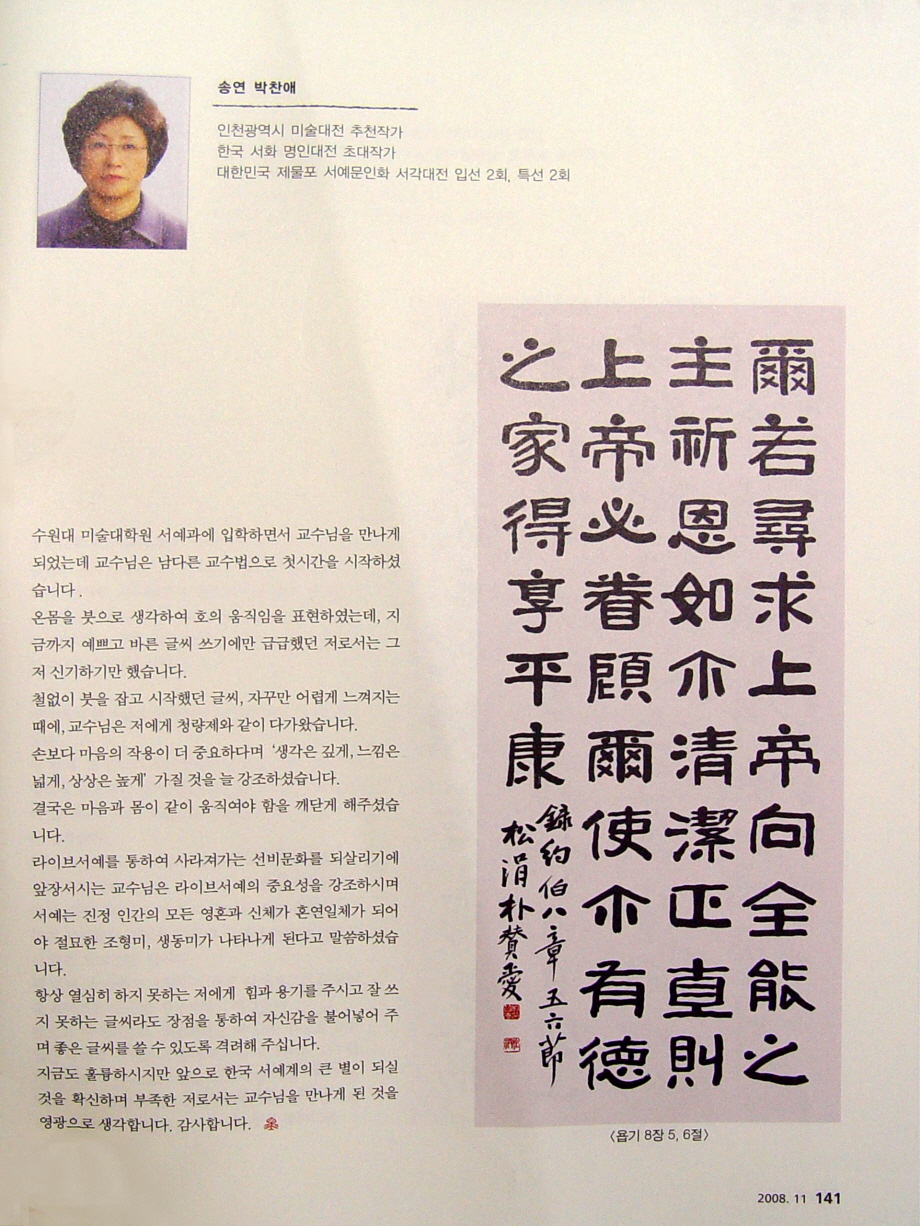 송연 박찬애
인천광역시 미술대전 추천작가
한국 서화 명인대전 초대작가
대한민국 제물포 서예문인화 서각대전 입선 2회, 특선 2회
수원대 미술대학원 서예과에 입학하면서 교수님을 만나게
되었는데 교수님은 남다른 교수법으로 첫시간을 시작하셨
습니다.
온몸을 붓으로 생각하여 호의 움직임을 표현하였는데, 지
금까지 예쁘고 바른 글씨 쓰기에만 급급했던 저로서는 그
저 신기하기만 했습니다.
철없이 붓을 잡고 시작했던 글씨, 자꾸만 어렵게 느껴지는
때에, 교수님은 저에게 청량제와 같이 다가왔습니다.
손보다 마음의 작용이 더 중요하다며 ‘생각은 깊게, 느낌은
넓게, 상상은 높게’ 가질 것을 늘 강조하셨습니다.
결국은 마음과 몸이 같이 움직여야 함을 깨닫게 해주셨습
니다.
라이브서예를 통하여 사라져가는 선비문화를 되살리기에
앞장서시는 교수님은 라이브서예의 중요성을 강조하시며
서예는 진정 인간의 모든 영혼과 신체가 혼연일체가 되어
야 절묘한 조형미, 생동미가 나타나게 된다고 말씀하셨습
니다.
항상 열심히 하지 못하는 저에게 힘과 용기를 주시고 잘 쓰
지 못하는 글씨라도 장점을 통하여 자신감을 불어넣어 주
며 좋은 글씨를 쓸 수 있도록 격려해 주십니다.
지금도 훌륭하시지만 앞으로 한국 서예계의 큰 별이 되실
것을 확신하며 부족한 저로서는 교수님을 만나게 된 것을
영광으로 생각합니다. 감사합니다.
爾若尋求上帝向全能之
主祈恩如尒清潔正直則
上帝必眷顧爾使尒有德
之家得享平康
錄約伯八章五六節
松涓朴贊愛
〈욥기 8장 5, 6절〉
2008. 11 141